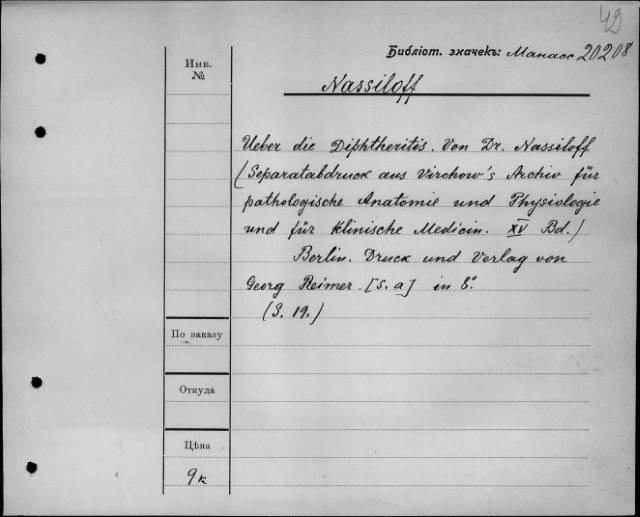 49
Библіот. значекъ: Манасс 20208
Инв.
№
Nassiloff
Ueber die Diphtheritis. Von Dr. Nassiloff
(Separatabdruck aus Virchow's Archiv für
pathologische Anatomie und Physiologie
und für klinische Medicin. XV Bd.)
Berlin. Druck und Verlag von
Georg Reimer. [S. a] in 8°
(S. 19.)
По заказу
Откуда
Цѣна
9к